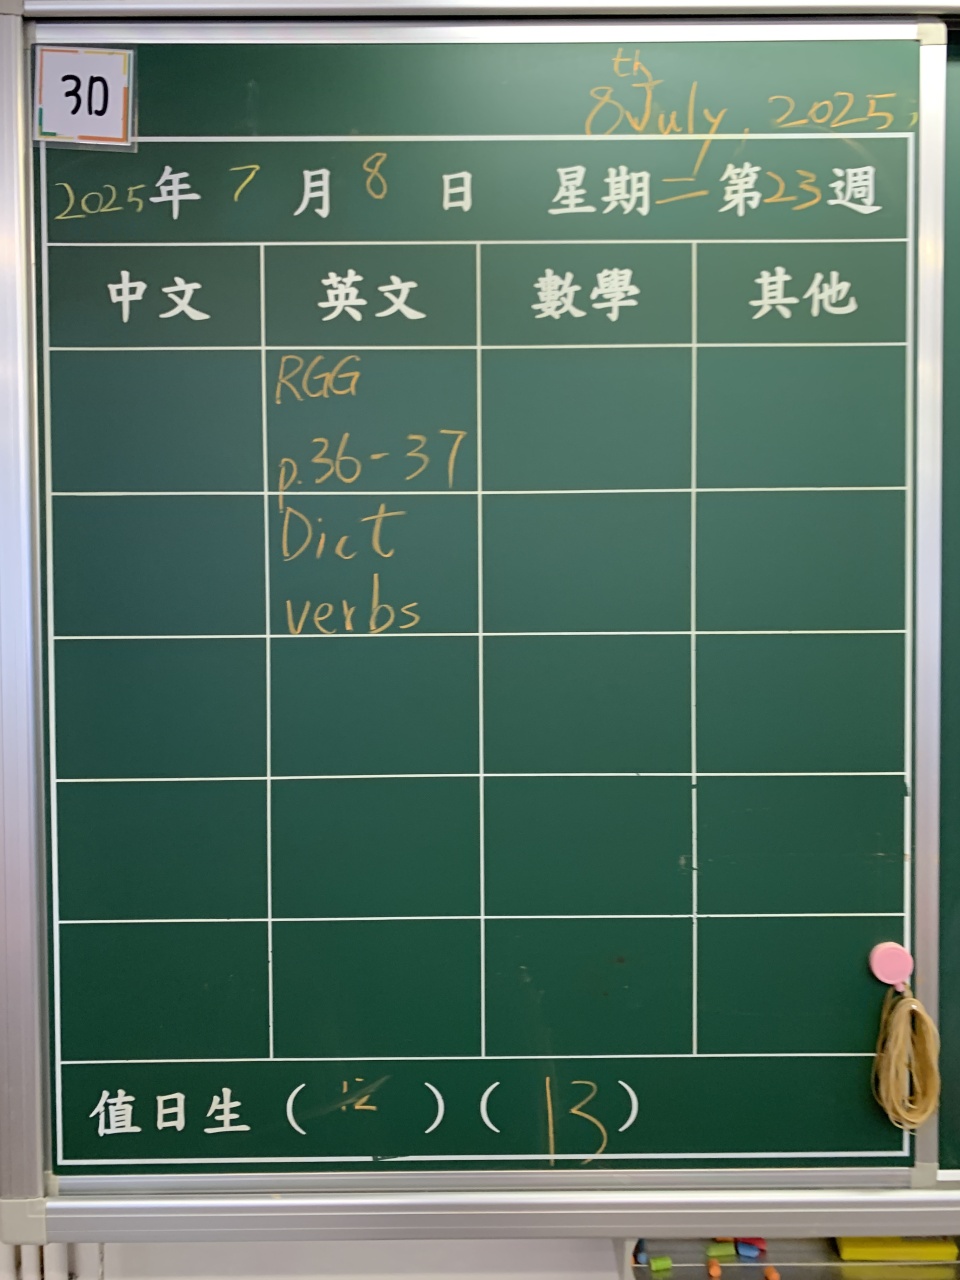 3D
8th July, 2025
2025年 7 月 8 日 星期二 第23週
中文 英文 數學 其他
RGG
p.36-37
Dict
verbs
值日生 ( 12 ) ( 13 )